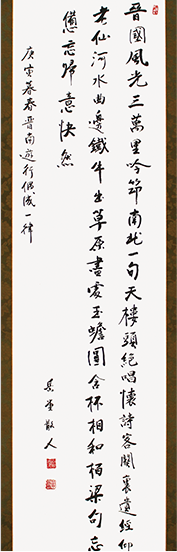 晋國風光三萬里吟筇南北一旬天樓頭絕唱懷詩客閣裏遺經仰
老仙河水曲邊鐵牛出草原盡處玉蟾圓含杯相和栢梁句忘
憊忘歸意快然
庚寅暮春晋南遊行偶成一律
堂散人